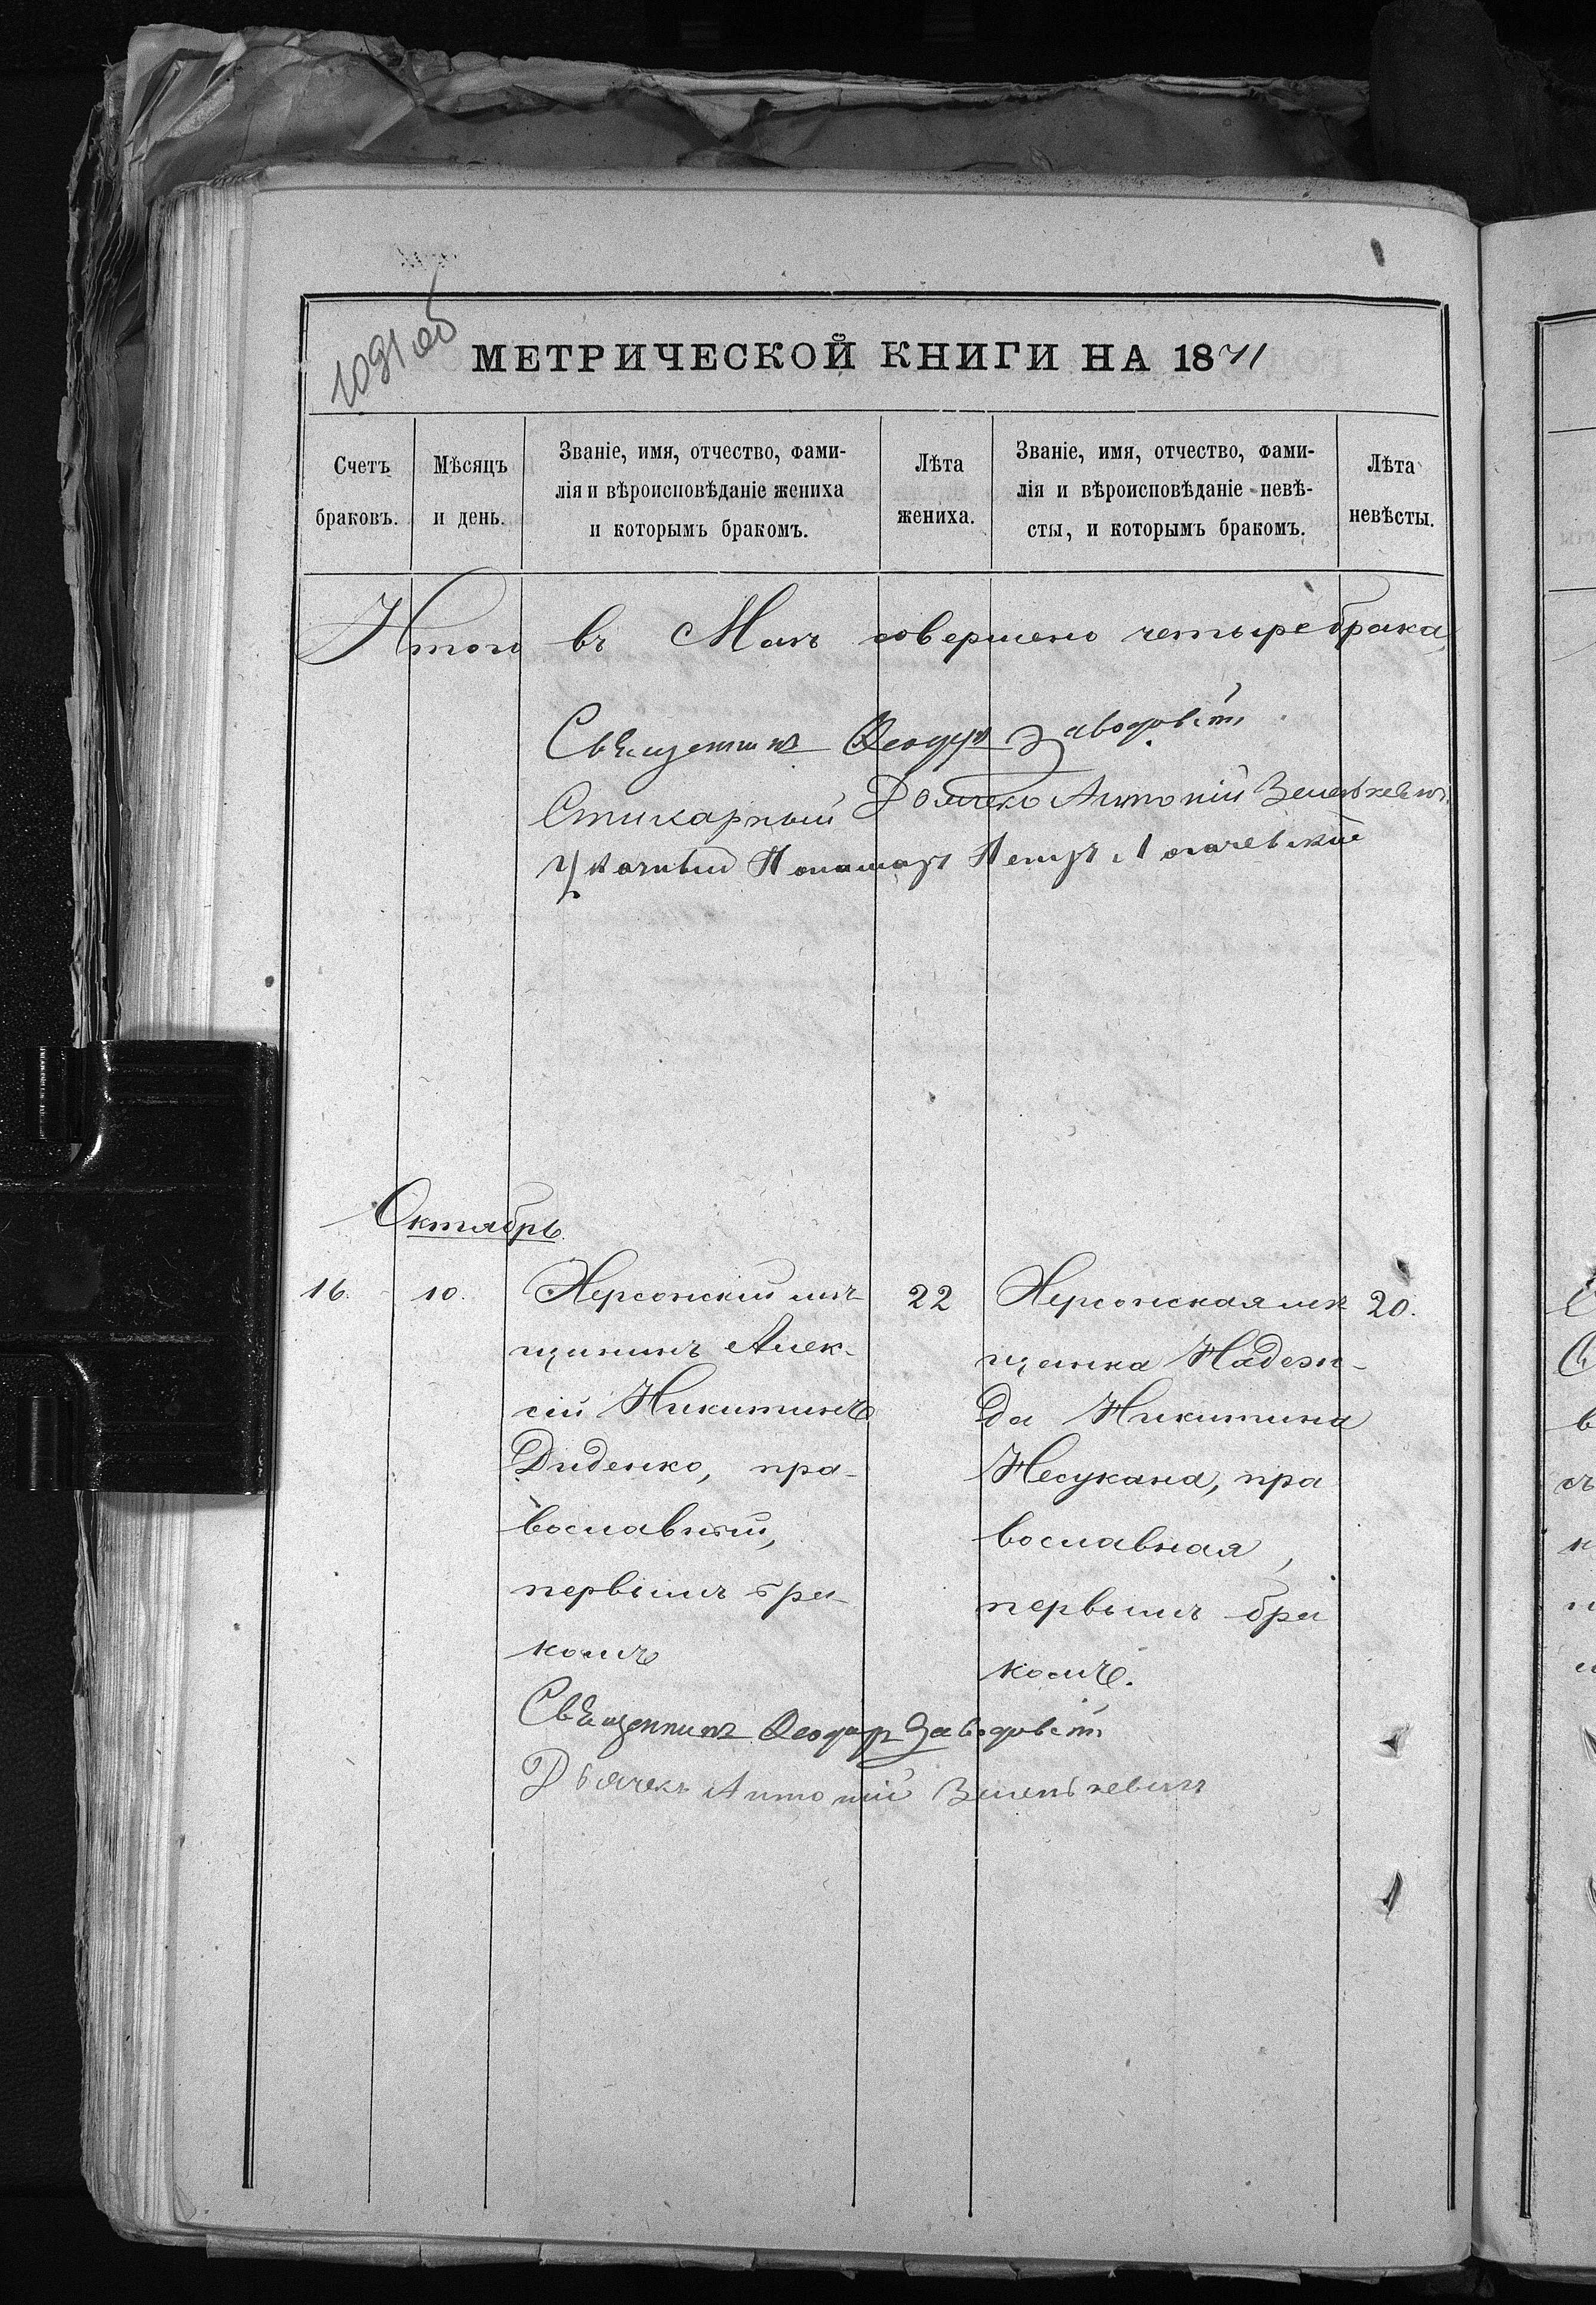 1091 об
МЕТРИЧЕСКОЙ КНИГИ НА 1871
Счетъ браковъ.
Мѣсяцъ и день.
Званіе, имя, отчество, фами-
лія и вѣроисповѣданіе жениха
и которымъ бракомъ.
Лѣта жениха.
Званіе, имя, отчество, фами-
лія и вѣроисповѣданіе невѣ-
сты, и которымъ бракомъ.
Лѣта невѣсты.
Итого въ Маѣ совершено четыре брака,
Священникъ Ѳеодоръ
Стихарный Антоній
Пономарь Петръ
Октябрь.
16. 10.
Херсонскій мѣ-
щанинъ Алек-
сій Никитинъ
Диденко, пра-
вославный,
первымъ бра-
комъ
22
Херсонская мѣ
щанка Надеж-
да Никитина
Несукана, пра
вославная,
первымъ бра
комъ.
20.
Священникъ Ѳеодоръ
Дьячекъ Антоній